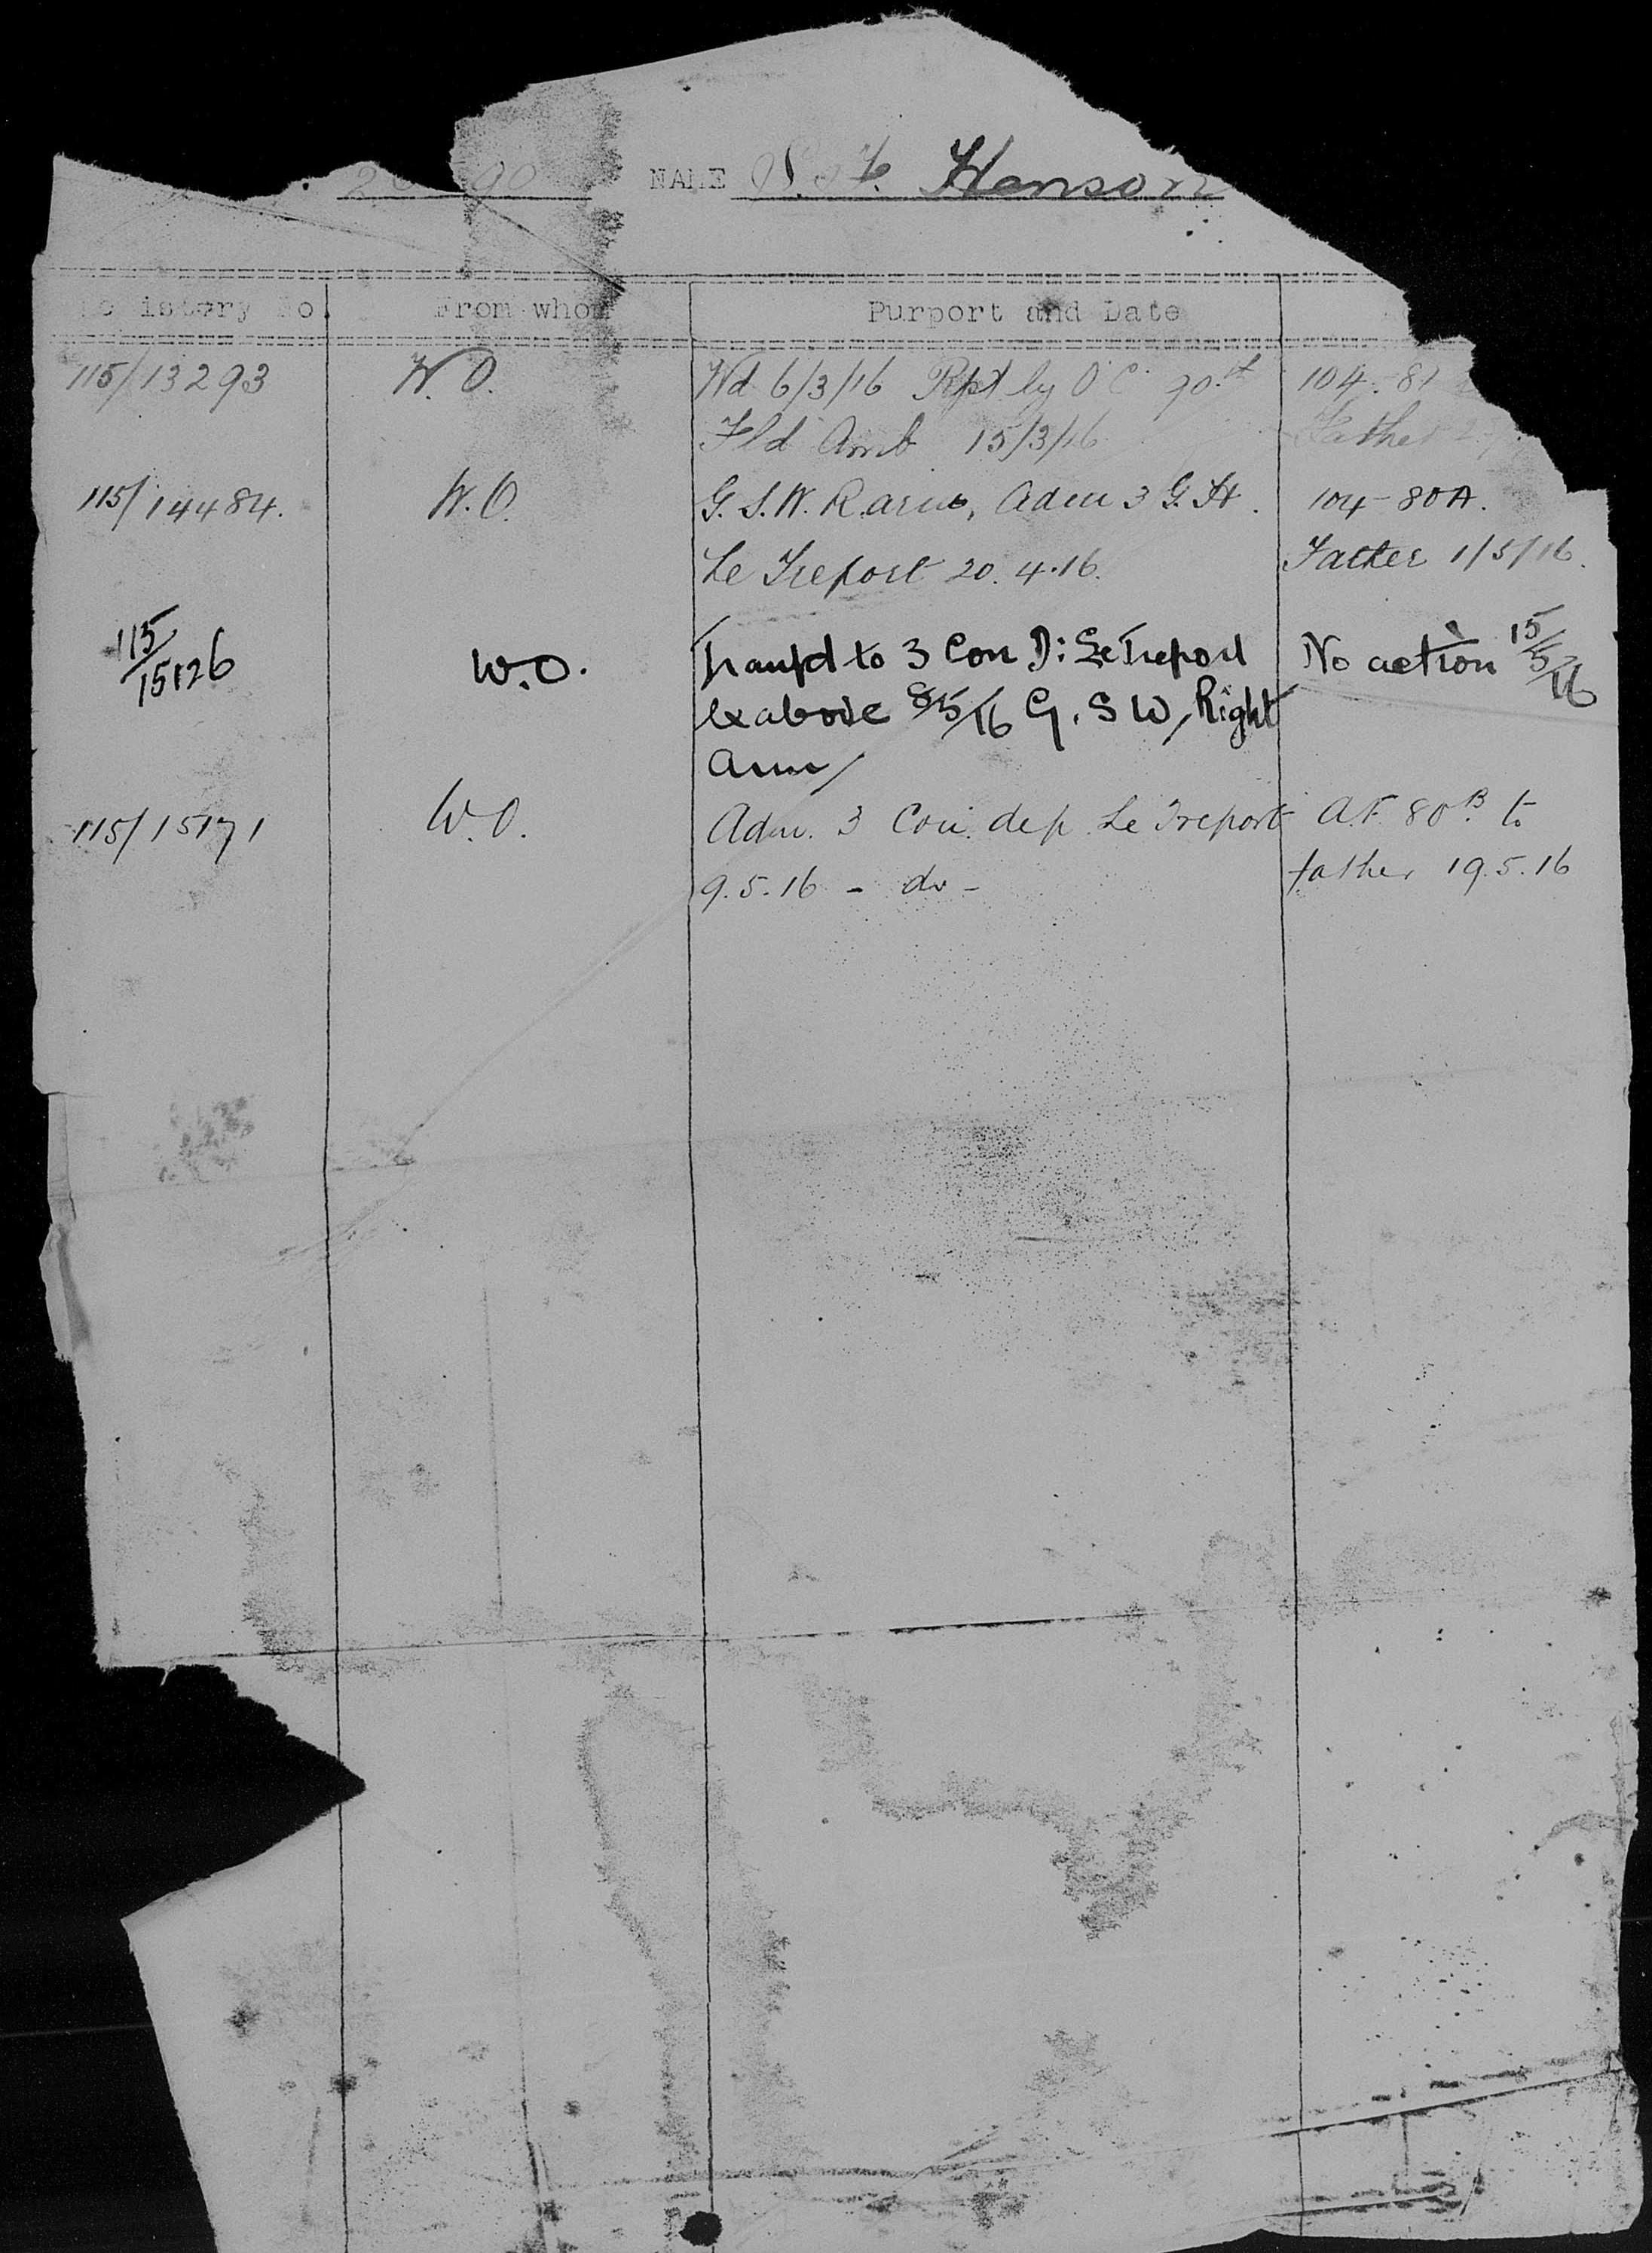 NAME Hanson
Registry No. From whom Purport and Date
115/13293 W.O. Wd 6/3/16 Rpt by O C 90th 104-81
Fld Amb 15/3/16 Father
115/14484. W.O. G.S.W. R. arm, Adm 3 G.H. 104-80A.
Le Treport 20.4.16. Father 1/5/16.
115/15126 W.O. Transfd to 3 Con D: Le Treport No action 15/5/16
ex above 8/5/16 G.S W, Right
Arm/
115/15171 W.O. Adm. 3 Con. dep. Le Treport A.F. 80B. to
9.5.16 - do - father 19.5.16